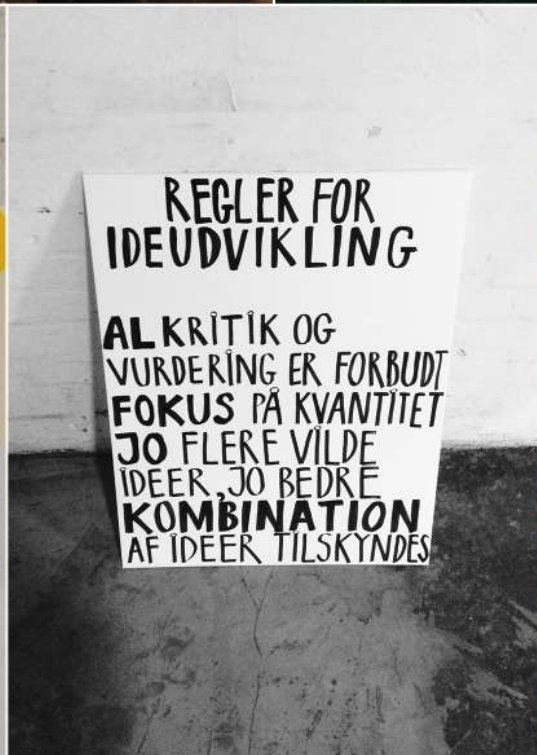 REGLER FOR
IDEUDVIKLING
AL KRITIK OG
VURDERING ER FORBUDT
FOKUS PÅ KVANTITET
JO FLERE VILDE
IDEER, JO BEDRE
KOMBINATION
AF IDEER TILSKYNDES